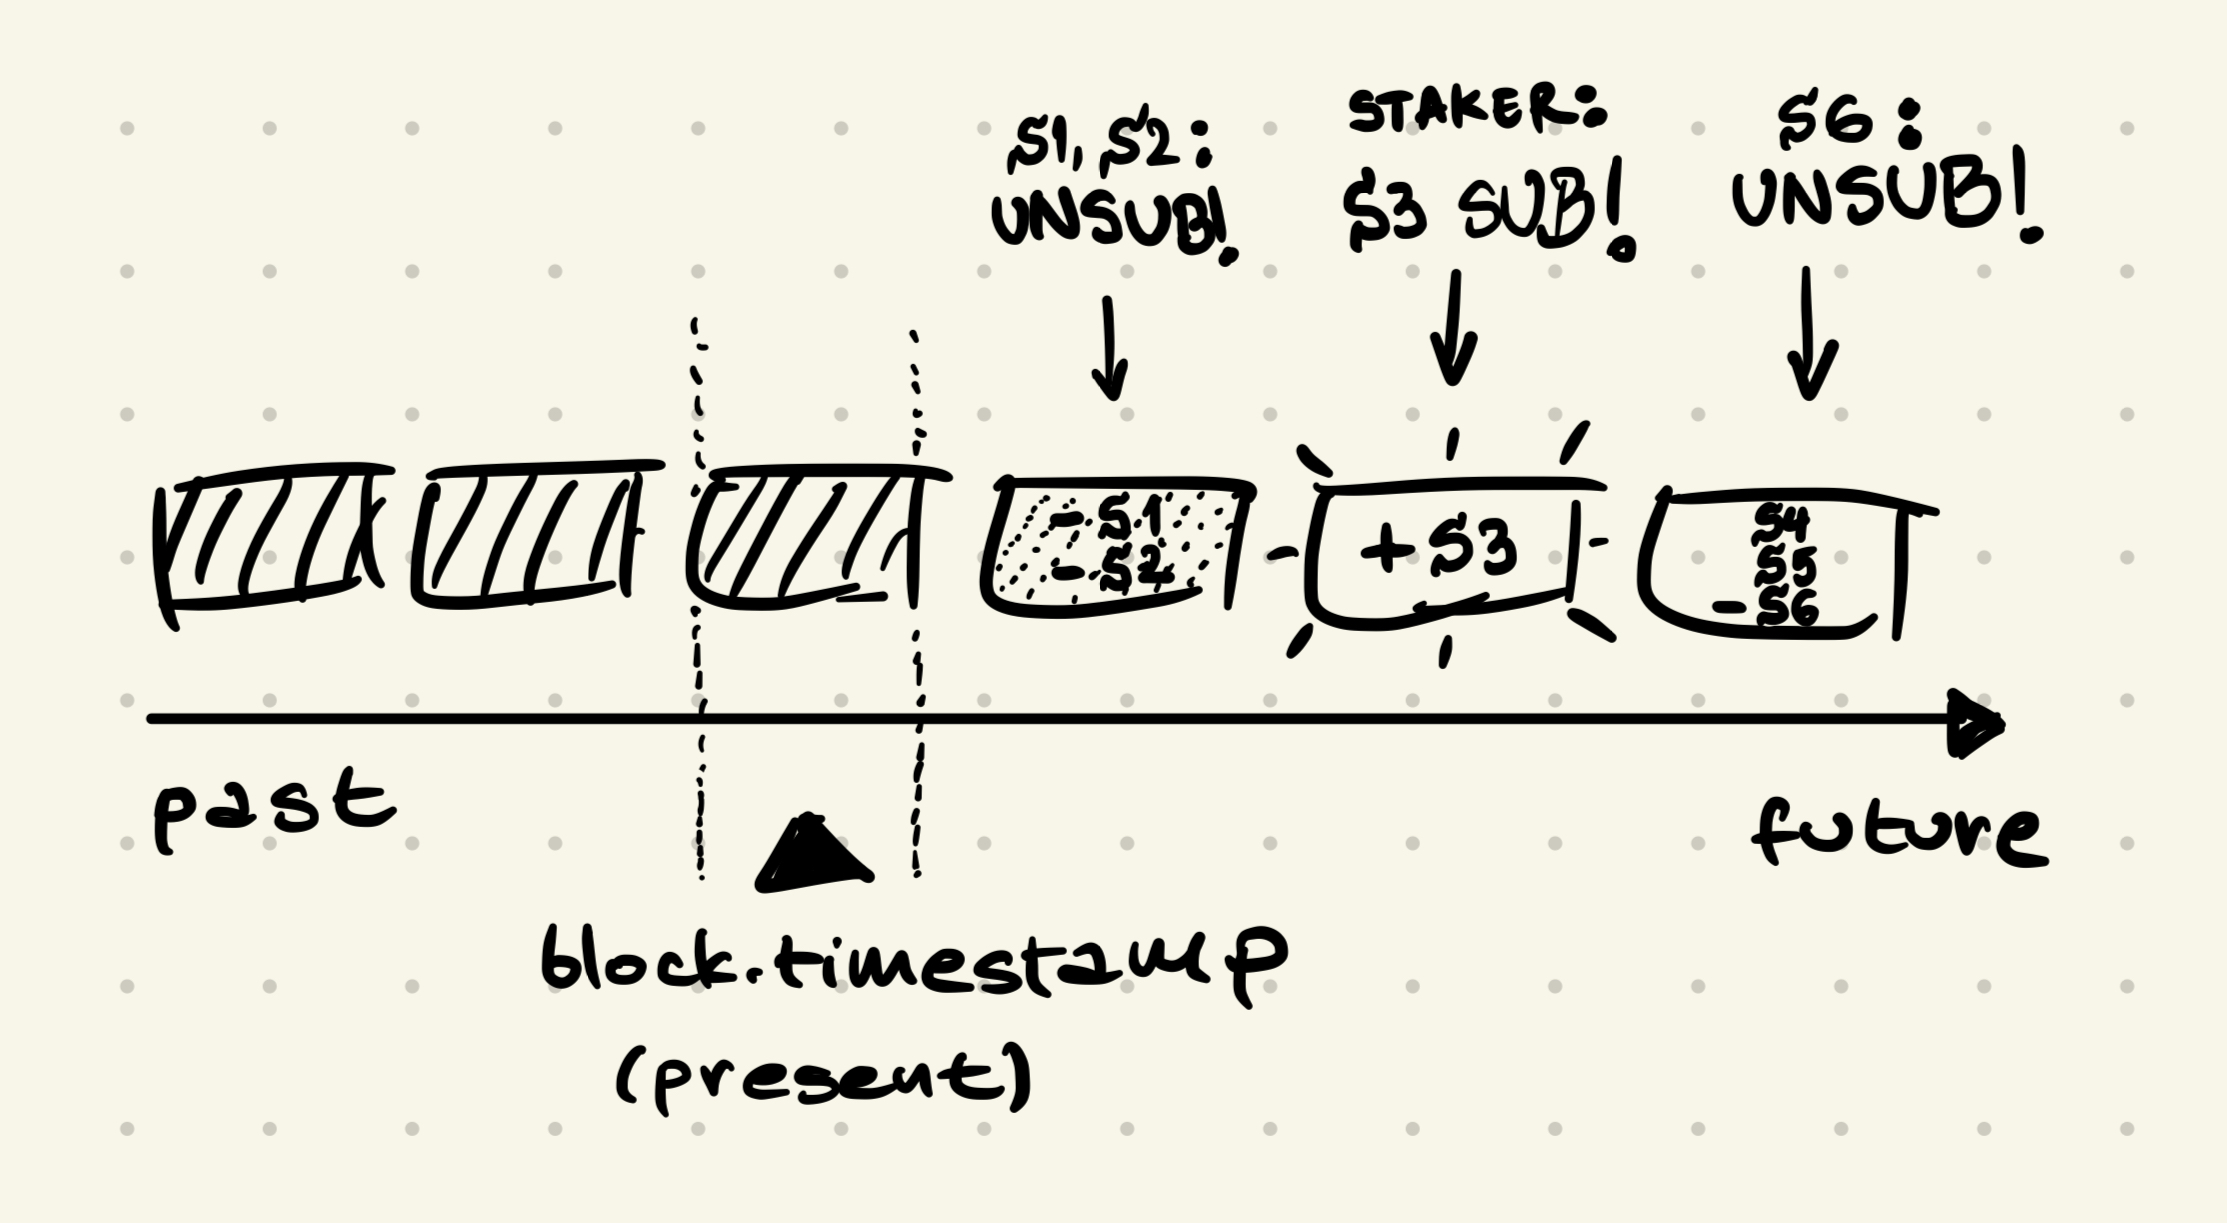 S1, S2:
UNSUB!
STAKER:
S3 SUB!
S6:
UNSUB!
-S1
-S2
+S3
S4
S5
-S6
past
future
block.timestamp
(present)